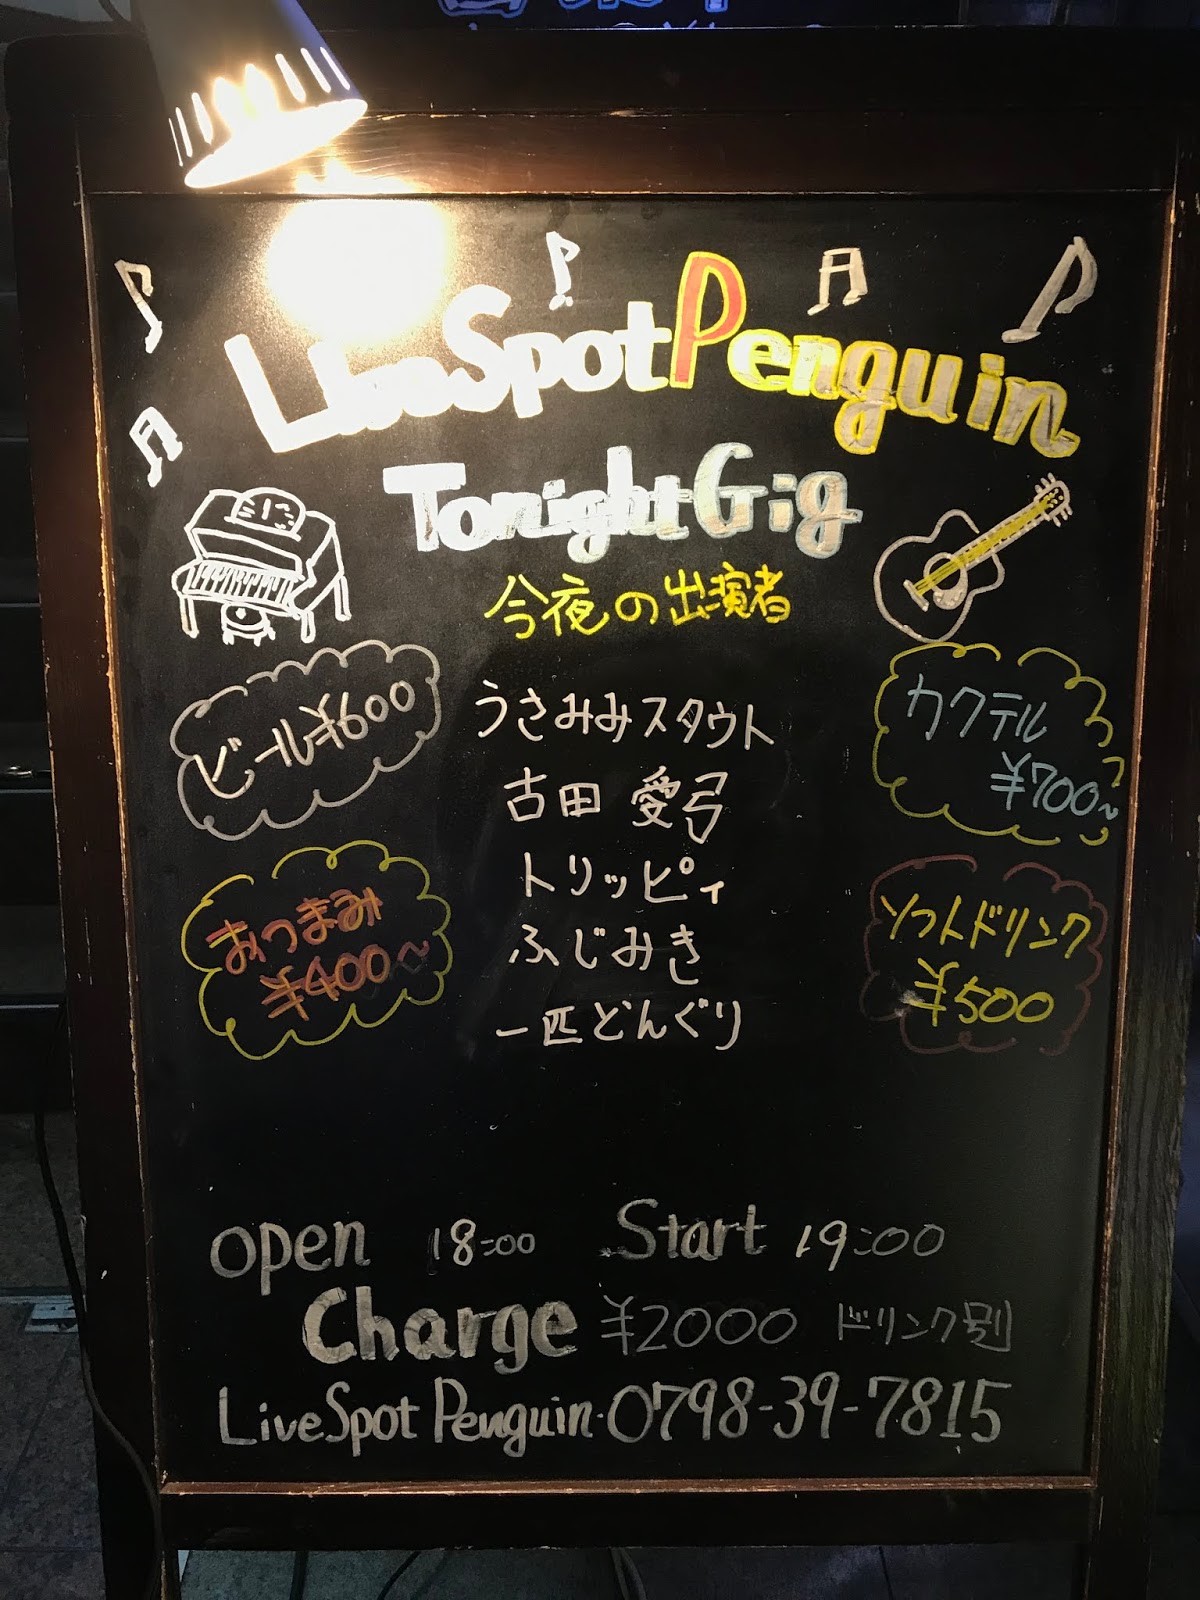 Live Spot Penguin
Tonight Gig
今夜の出演者
ビール¥600
うさみみスタウト
カクテル
¥700~
古田 愛弓
トリッピィ
おつまみ
¥400~
ふじみき
ソフトドリンク
¥500
一匹どんぐり
open 18:00 Start 19:00
Charge ¥2000 ドリンク別
Live Spot Penguin・0798-39-7815